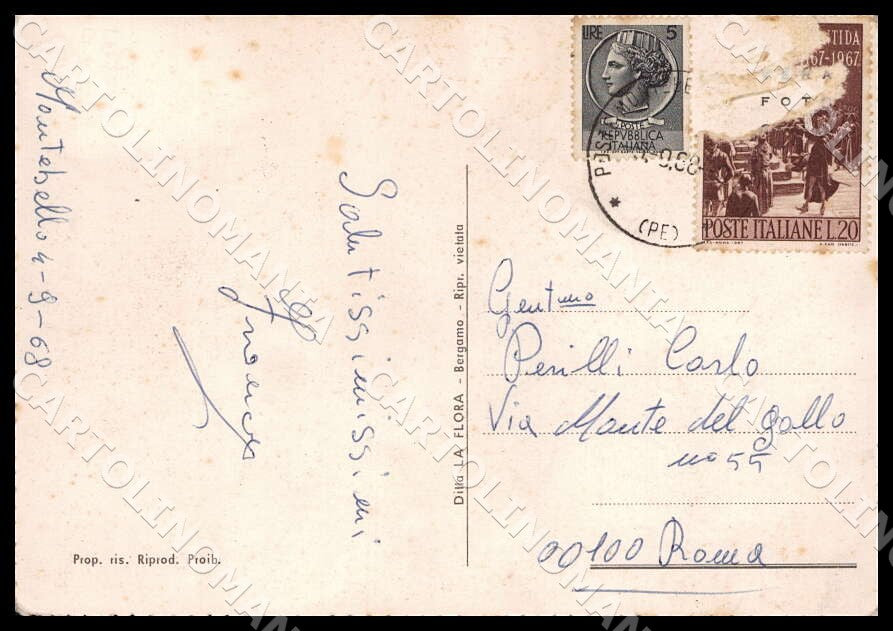 Montebello 4-9-68
Salutissimissimi
Ditta LA FLORA - Bergamo - Ripr. vietata
Prop. ris. Riprod. Proib.
LIRE 5
POSTE
REPVBBLICA
ITALIANA
1867-1967
FOT
POSTE ITALIANE L.20
(PE)
Gent.mo
Perilli Carlo
Via Monte del Gallo
no 55
00100 Roma
CARTOLINOMANIA